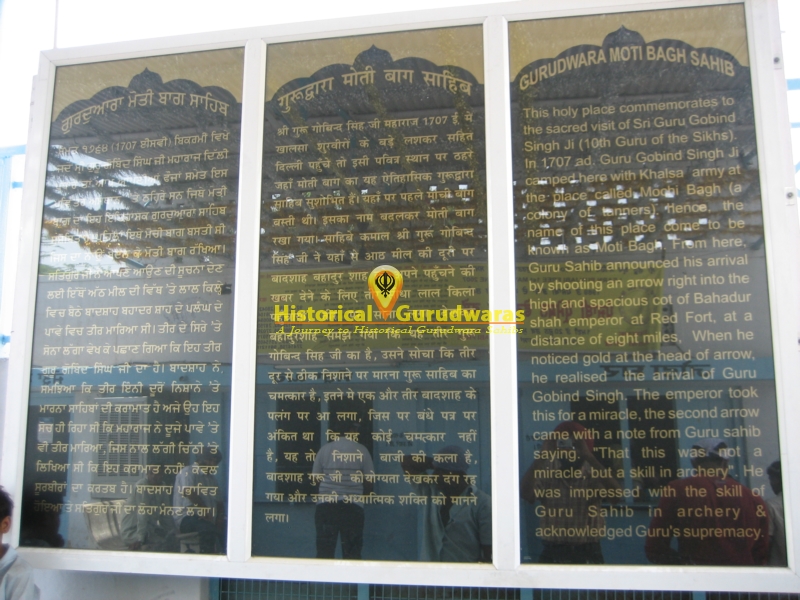 ਗੁਰਦੁਆਰਾ ਮੋਤੀ ਬਾਗ ਸਾਹਿਬ
੧੭੬੪ (1707 ਈਸਵੀ) ਬਿਕਰਮੀ ਵਿਖੇ
ਗੋਬਿੰਦ ਸਿੰਘ ਜੀ ਮਹਾਰਾਜ ਦਿੱਲੀ
ਫੌਜਾਂ ਸਮੇਤ ਇਸ
ਠਹਿਰੇ ਸਨ ਜਿਥੇ ਮੋਤੀ
ਗੁਰਦੁਆਰਾ ਸਾਹਿਬ
ਮੋਚੀ ਬਾਗ ਬਸਤੀ ਸੀ
ਮੋਤੀ ਬਾਗ ਰੱਖਿਆ।
ਸਤਿਗੁਰ ਜੀ ਨੇ ਆਪਣੇ ਆਉਣ ਦੀ ਸੂਚਨਾ ਦੇਣ
ਲਈ ਇਥੋਂ ਅੱਠ ਮੀਲ ਦੀ ਵਿੱਥ 'ਤੇ ਲਾਲ ਕਿਲੇ
ਵਿਚ ਬੈਠੇ ਬਾਦਸ਼ਾਹ ਬਹਾਦਰ ਸ਼ਾਹ ਦੇ ਪਲੰਘ ਦੇ
ਪਾਵੇ ਵਿਚ ਤੀਰ ਮਾਰਿਆ ਸੀ। ਤੀਰ ਦੇ ਸਿਰੇ 'ਤੇ
ਸੋਨਾ ਲੱਗਾ ਵੇਖ ਕੇ ਪਛਾਣ ਗਿਆ ਕਿ ਇਹ ਤੀਰ
ਗੁਰੂ ਗੋਬਿੰਦ ਸਿੰਘ ਜੀ ਦਾ ਹੈ। ਬਾਦਸ਼ਾਹ ਨੇ
ਸਮਝਿਆ ਕਿ ਤੀਰ ਇੰਨੀ ਦੂਰੋਂ ਨਿਸ਼ਾਨੇ 'ਤੇ
ਮਾਰਨਾ ਸਾਹਿਬਾਂ ਦੀ ਕਰਾਮਾਤ ਹੈ ਅਜੇ ਉਹ ਇਹ
ਸੋਚ ਹੀ ਰਿਹਾ ਸੀ ਕਿ ਮਹਾਰਾਜ ਨੇ ਦੂਜੇ ਪਾਵੇ 'ਤੇ
ਵੀ ਤੀਰ ਮਾਰਿਆ, ਜਿਸ ਨਾਲ ਲੱਗੀ ਚਿੱਠੀ 'ਤੇ
ਲਿਖਿਆ ਸੀ ਕਿ ਇਹ ਕਰਾਮਾਤ ਨਹੀਂ, ਕੇਵਲ
ਸੂਰਬੀਰਾਂ ਦਾ ਕਰਤਬ ਹੈ। ਬਾਦਸ਼ਾਹ ਪ੍ਰਭਾਵਿਤ
ਹੋਇਆ ਤੇ ਸਤਿਗੁਰੂ ਜੀ ਦਾ ਲੋਹਾ ਮੰਨਣ ਲੱਗਾ।
गुरुद्वारा मोती बाग साहिब
श्री गुरू गोबिन्द सिंह जी महाराज 1707 ई में
खालसा शुरवीरों के बड़े लशकर सहित
दिल्ली पहुँचे तो इसी पवित्र स्थान पर ठहरे
जहाँ मोती बाग का यह ऐतिहासिक गुरूद्वारा
साहिब सुशोभित है। यहाँ पर पहले मोची बाग
बस्ती थी। इसका नाम बदलकर मोती बाग
रखा गया। साहिबे कमाल श्री गुरू गोबिन्द
सिंह जी ने यहाँ से आठ मील की दूरी पर
बादशाह बहादुर शाह अपने पहुँचने की
खबर देने के लिए लाल किला
बहादुरशाह समझ गया कि यह तीर गुरू
गोबिन्द सिंह जी का है, उसने सोचा कि तीर
दूर से ठीक निशाने पर मारना गुरू साहिब का
चमत्कार है, इतने में एक और तीर बादशाह के
पलंग पर आ लगा, जिस पर बंधे पत्र पर
अंकित था कि यह कोई चमत्कार नहीं
है, यह तो निशाने बाजी की कला है,
बादशाह गुरू जी की योग्यता देखकर दंग रह
गया और उनकी अध्यात्मिक शक्ति को मानने
लगा।
GURUDWARA MOTI BAGH SAHIB
This holy place commemorates to
the sacred visit of Sri Guru Gobind
Singh Ji (10th Guru of the Sikhs).
In 1707 ad. Guru Gobind Singh Ji
camped here with Khalsa army at
the place called Mochi Bagh (a
colony of tanners). Hence, the
name of this place come to be
known as Moti Bagh. From here,
Guru Sahib announced his arrival
by shooting an arrow right into the
high and spacious cot of Bahadur
shah emperor at Red Fort, at a
distance of eight miles, When he
noticed gold at the head of arrow,
he realised the arrival of Guru
Gobind Singh. The emperor took
this for a miracle, the second arrow
came with a note from Guru sahib
saying. "That this was not a
miracle, but a skill in archery". He
was impressed with the skill of
Guru Sahib in archery &
acknowledged Guru's supremacy.
Historical Gurudwaras
A Journey to Historical Gurudwara Sahibs